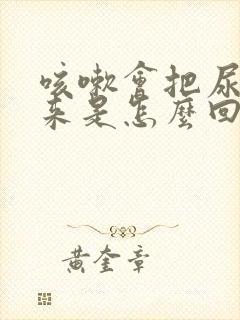 咳嗽會把尿
來是怎麼回
黃奎章